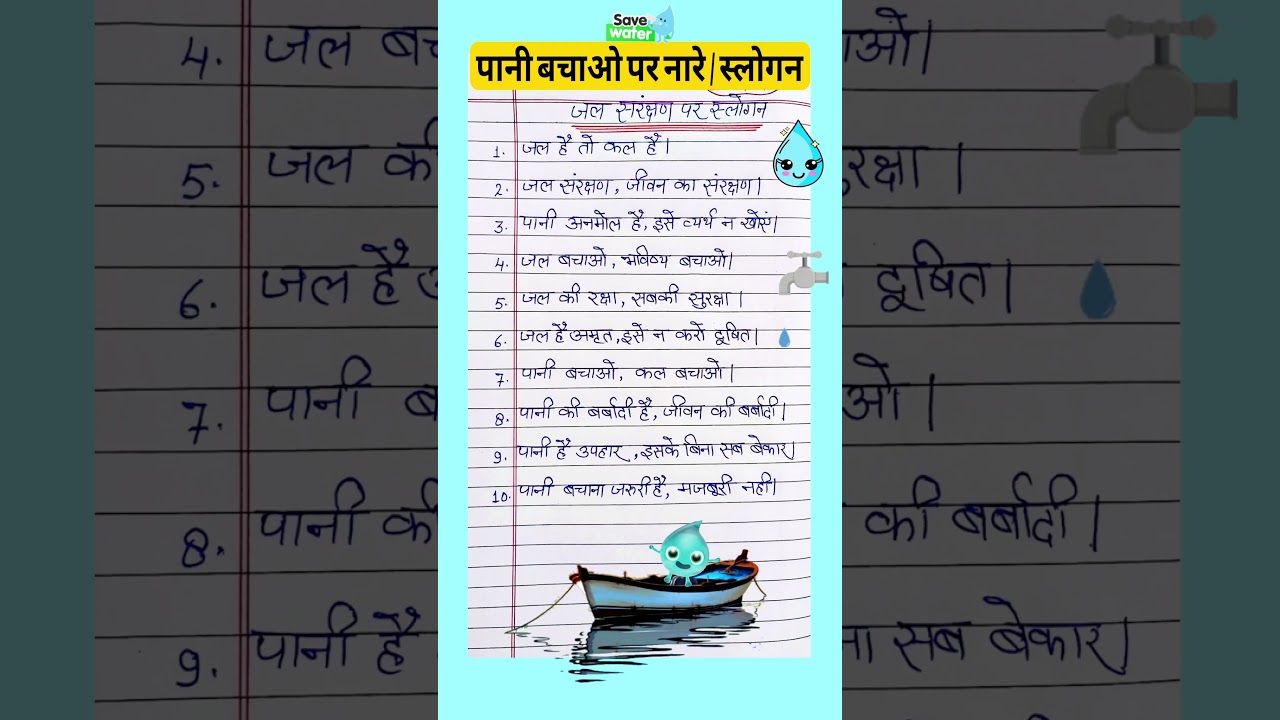 Save
water
पानी बचाओ पर नारे|स्लोगन
जल सरंक्षण पर स्लोगन
1. जल है तो कल है।
2. जल संरक्षण, जीवन का संरक्षण।
3. पानी अनमोल है, इसे व्यर्थ न खोएं।
4. जल बचाओ, भविष्य बचाओ।
5. जल की रक्षा, सबकी सुरक्षा।
6. जल है अमृत, इसे न करो दूषित।
7. पानी बचाओ, कल बचाओ।
8. पानी की बर्बादी है, जीवन की बर्बादी।
9. पानी है उपहार, इसके बिना सब बेकार।
10. पानी बचाना जरुरी है, मजबूरी नही।